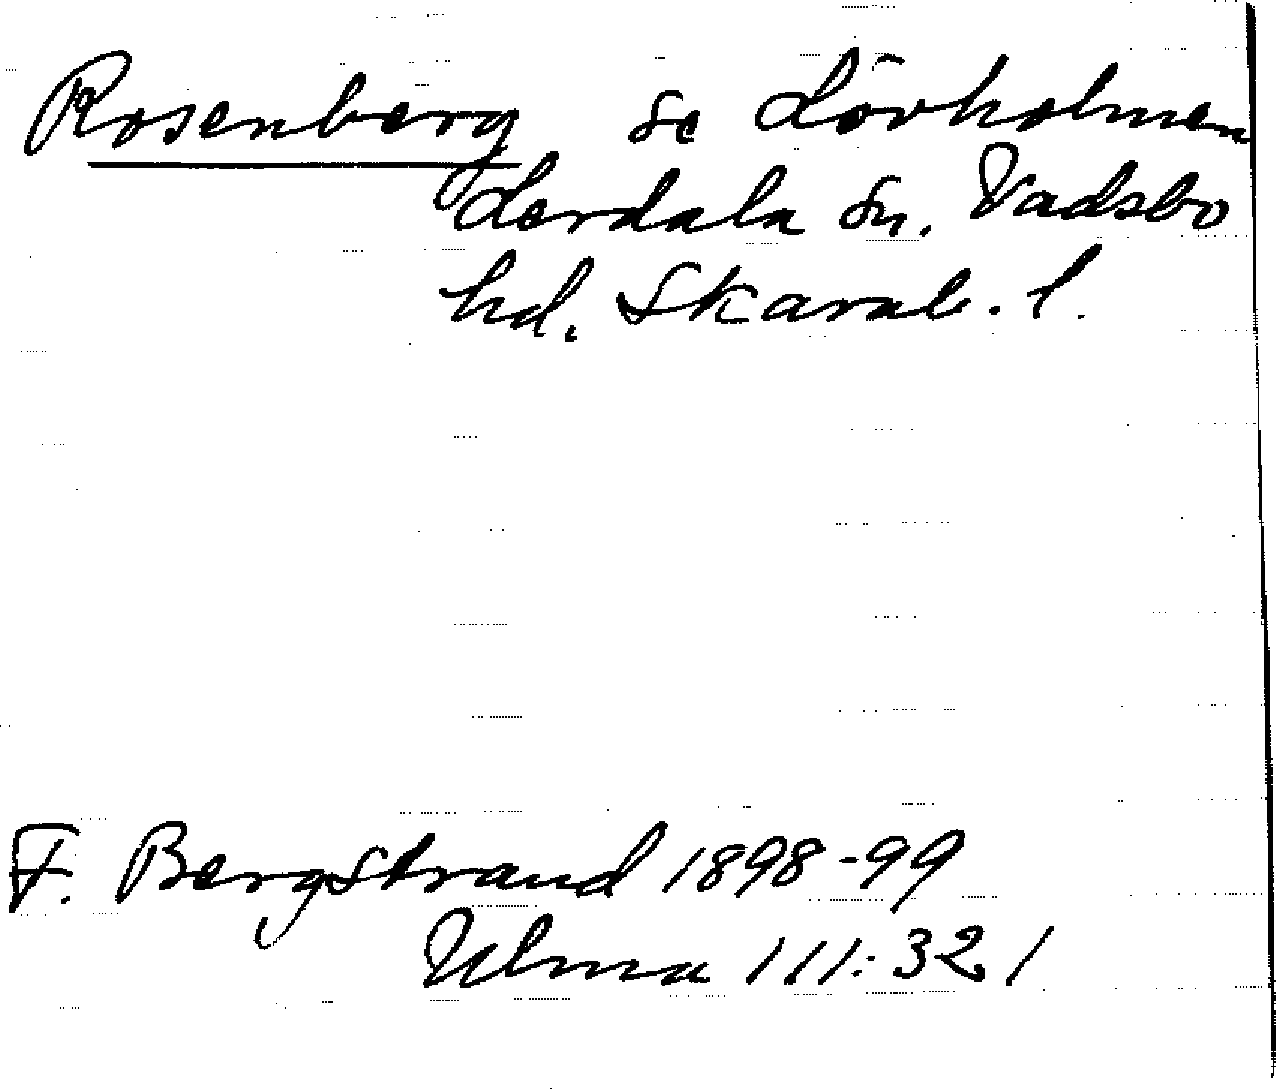 Rosenberg se Lövholmen
Lerdala sn. Vadsbo
hd. Skarab. l.
F. Bergstrand 1898-99
Ulma 111:32 1